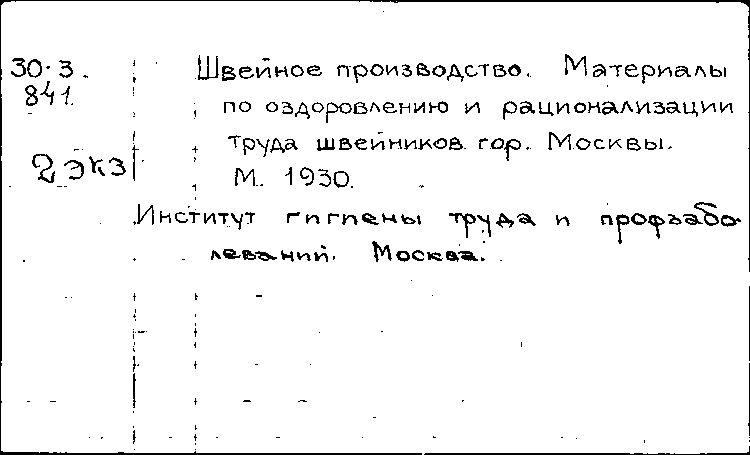 30·3.
841.
2 экз
Швейное производство. Материалы
по оздоровлению и рационализации
труда швейников гор. Москвы.
М. 1930.
Институт гигиены труда и профзабо-
леваний. Москва.